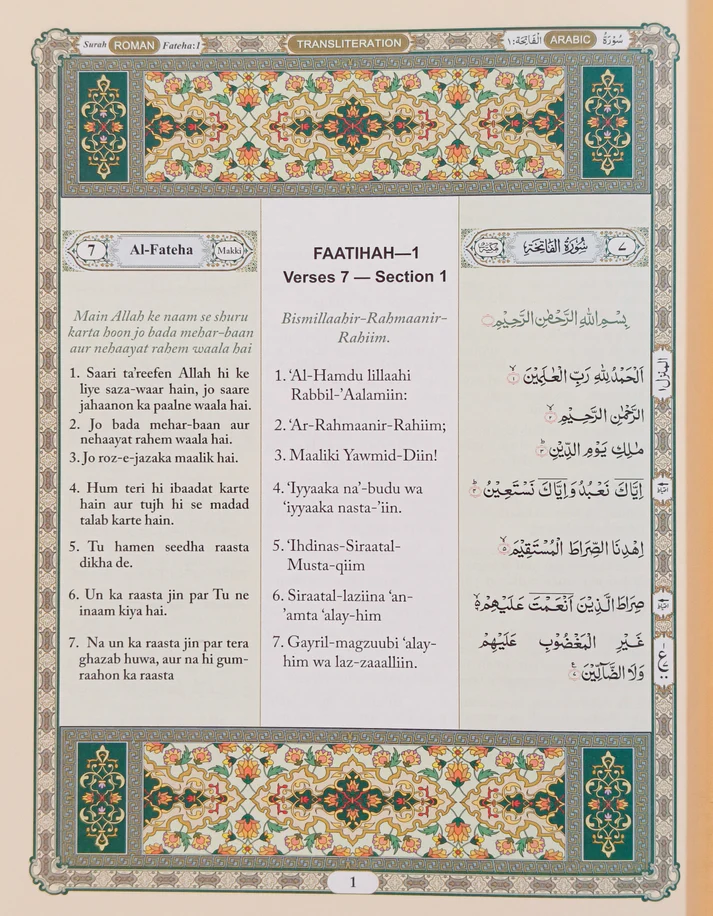 Surah ROMAN Fateha:1
TRANSLITERATION
سُوْرَةُ ARABIC اَلْفَاتِحَة:١
7 Al-Fateha Makki
Main Allah ke naam se shuru
karta hoon jo bada mehar-baan
aur nehaayat rahem waala hai
1. Saari ta'reefen Allah hi ke
liye saza-waar hain, jo saare
jahaanon ka paalne waala hai.
2. Jo bada mehar-baan aur
nehaayat rahem waala hai.
3. Jo roz-e-jazaka maalik hai.
4. Hum teri hi ibaadat karte
hain aur tujh hi se madad
talab karte hain.
5. Tu hamen seedha raasta
dikha de.
6. Un ka raasta jin par Tu ne
inaam kiya hai.
7. Na un ka raasta jin par tera
ghazab huwa, aur na hi gum-
raahon ka raasta
FAATIHAH—1
Verses 7 — Section 1
Bismillaahir-Rahmaanir-
Rahiim.
1. ‘Al-Hamdu lillaahi
Rabbil-’Aalamiin:
2. ‘Ar-Rahmaanir-Rahiim;
3. Maaliki Yawmid-Diin!
4. ‘Iyyaaka na’-budu wa
‘iyyaaka nasta-’iin.
5. ‘Ihdinas-Siraatal-
Musta-qiim
6. Siraatal-laziina ‘an-
’amta ‘alay-him
7. Gayril-magzuubi ‘alay-
him wa laz-zaaalliin.
٧ سُوْرَةُ الْفَاتِحَةِ مَكِّيَّةٌ
بِسْمِ اللّٰهِ الرَّحْمٰنِ الرَّحِيْمِ
اَلْحَمْدُ لِلّٰهِ رَبِّ الْعٰلَمِيْنَ ۙ۱
الرَّحْمٰنِ الرَّحِيْمِ ۙ۲
مٰلِكِ يَوْمِ الدِّيْنِ ؕ۳
اِيَّاكَ نَعْبُدُ وَاِيَّاكَ نَسْتَعِيْنُ ؕ۴
اِهْدِنَا الصِّرَاطَ الْمُسْتَقِيْمَ ۙ۵
صِرَاطَ الَّذِيْنَ اَنْعَمْتَ عَلَيْهِمْ ۙ۶
غَيْرِ الْمَغْضُوْبِ عَلَيْهِمْ
وَلَا الضَّآلِّيْنَ ۧ۷
المنزل ١
ع
1